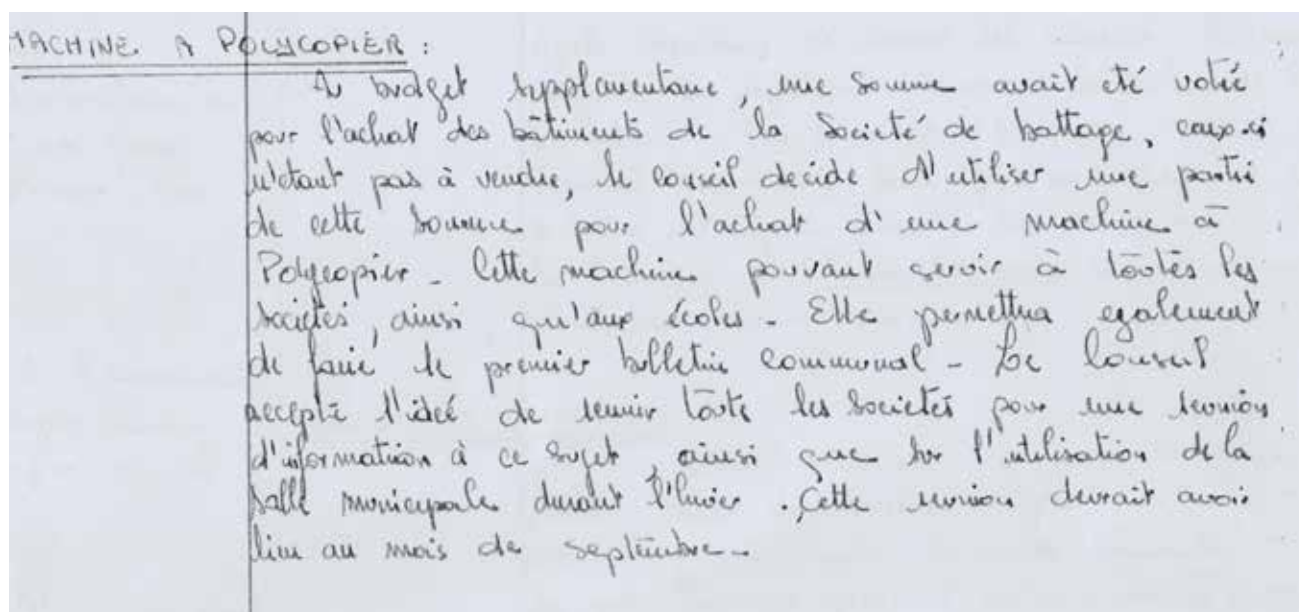 MACHINE A POLYCOPIER :
Au budget supplementaire, une somme avait eté votée
pour l'achat des bâtiments de la Societé de battage, ceux-ci
n'étant pas à vendre, le conseil decide d'utiliser une partie
de cette somme pour l'achat d'une machine à
Polycopier - Cette machine pouvant servir à toutes les
sociétés, ainsi qu'aux écoles - Elle permettra egalement
de faire le premier bulletin communal - Le Conseil
accepte l'idée de reunir toute les societés pour une reunion
d'information à ce sujet, ainsi que sur l'utilisation de la
salle municipale durant l'hiver. Cette reunion devrait avoir
lieu au mois de septembre -